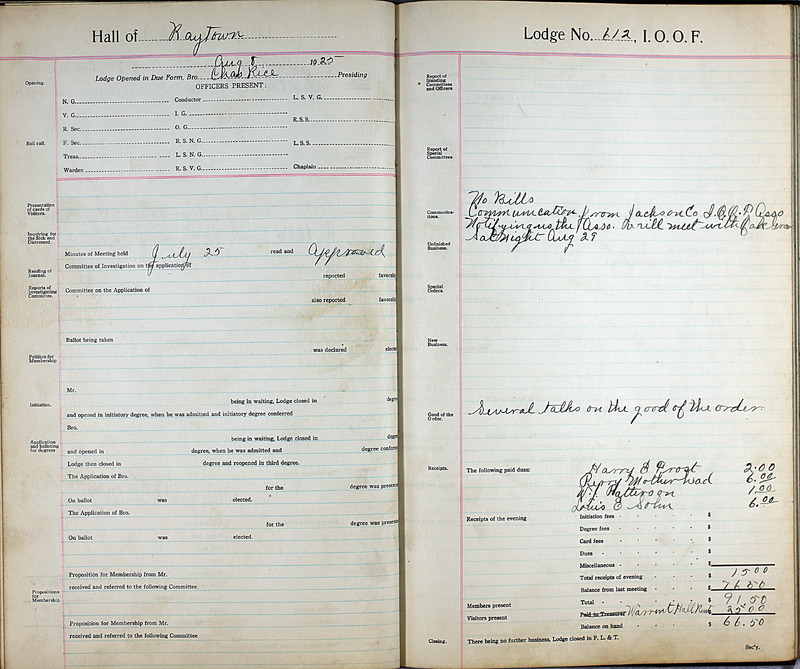 Hall of Raytown
Aug 8 1925
Lodge Opened in Due Form, Bro. Chas Rice Presiding
Opening.
OFFICERS PRESENT:
N. G. Conductor L. S. V. G.
V. G. I. G. R.S.S.
R. Sec. O. G.
Roll call.
F. Sec. R. S. N. G. L.S.S.
Treas. L. S. N. G.
Warden R. S. V. G. Chaplain
Presentation of cards of Visitors.
Inquiring for the Sick and Distressed.
Minutes of Meeting held July 25 read and approved
Reading of Journal.
Committee of Investigation on the application of
reported favorably
Reports of Investigating Committee.
Committee on the Application of
also reported favorably
Ballot being taken
was declared elected
Petition for Membership
Mr.
being in waiting, Lodge closed in degree
Initiation.
and opened in initiatory degree, when he was admitted and initiatory degree conferred
Bro.
being in waiting, Lodge closed in degree
Application and balloting for degrees
and opened in degree, when he was admitted and degree conferred
Lodge then closed in degree and reopened in third degree.
The Application of Bro.
for the degree was presented
On ballot was elected.
The Application of Bro.
for the degree was presented
On ballot was elected.
Proposition for Membership from Mr.
received and referred to the following Committee
Propositions for Membership
Proposition for Membership from Mr.
received and referred to the following Committee
Lodge No. 612, I. O. O. F.
Report of Standing Committees and Officers
Report of Special Committees
No Bills
Communications.
Communication from Jackson Co I.O.O.F Asso
Notifying us the Asso. Will meet with Oak Grove
Unfinished Business.
Sat Night Aug 29
Special Orders.
New Business.
Good of the Order.
Several talks on the good of the order
Receipts.
The following paid dues:
Harry B Frost 2.00
Perry Motherhead 6.00
W.J. Patterson 1.00
Louis E Sohn 6.00
Receipts of the evening
Initiation fees $
Degree fees $
Card fees $
Dues $
Miscellaneous $
Total receipts of evening $ 15.00
Balance from last meeting $ 76.50
Members present
Total $ 91.50
Visitors present
Paid to Treasurer Warrent Hall Rent $ 25.00
Balance on hand $ 66.50
Closing.
There being no further business, Lodge closed in F. L. & T.
Sec'y.